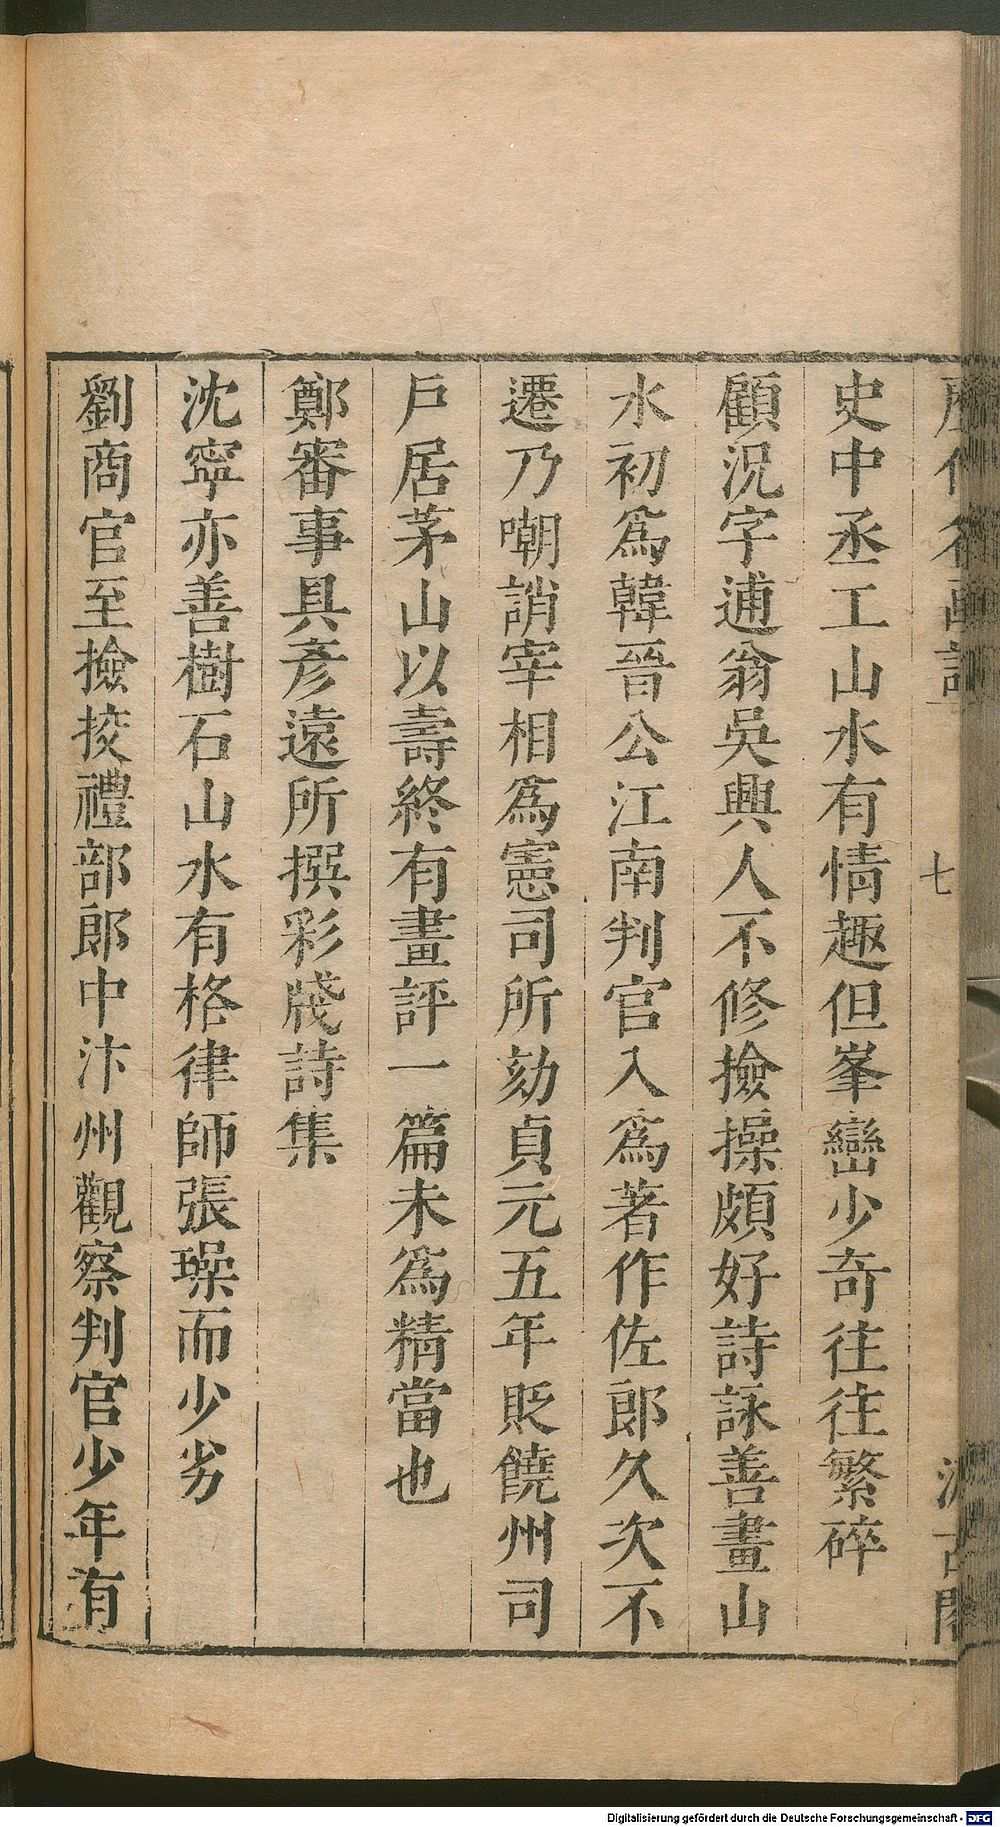 史中丞工山水有情趣但峯巒少奇往往繁碎
顧況字逋翁吳興人不修撿操頗好詩詠善畫山
水初爲韓晉公江南判官入爲著作佐郎久次不
遷乃嘲誚宰相爲憲司所劾貞元五年貶饒州司
戶居茅山以壽終有畫評一篇未爲精當也
鄭審事具彥遠所撰彩牋詩集
沈寧亦善樹石山水有格律師張璪而少劣
劉商官至撿挍禮部郎中汴州觀察判官少年有
七
Digitalisierung gefördert durch die Deutsche Forschungsgemeinschaft - DFG